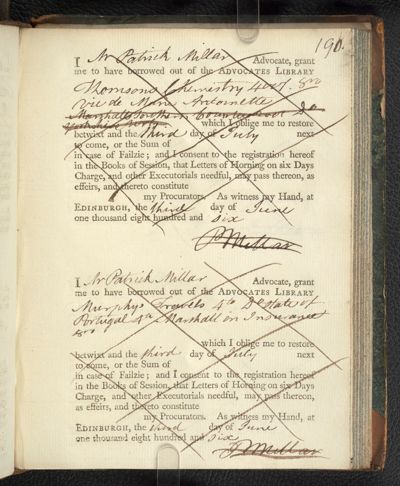 190.
I Mr Patrick Millar Advocate, grant
me to have borrowed out of the ADVOCATES LIBRARY
Thomsons Chemistry 4 vol. 8vo
vie de Marie Antoinette
Marshalls
which I oblige me to restore
betwixt and the third day of July next
to come, or the Sum of
in case of Failzie; and I consent to the registration hereof
in the Books of Session, that Letters of Horning on six Days
Charge, and other Executorials needful, may pass thereon, as
effeirs, and thereto constitute
my Procurators. As witness my Hand, at
EDINBURGH, the third day of June
one thousand eight hundred and six
P Millar
I Mr Patrick Millar Advocate, grant
me to have borrowed out of the ADVOCATES LIBRARY
Murphys Travels 4to Do State of
Portugal 4to Marshall on Insurance
8vo
which I oblige me to restore
betwixt and the third day of July next
to come, or the Sum of
in case of Failzie; and I consent to the registration hereof
in the Books of Session, that Letters of Horning on six Days
Charge, and other Executorials needful, may pass thereon,
as effeirs, and thereto constitute
my Procurators. As witness my Hand, at
EDINBURGH, the third day of June
one thousand eight hundred and six
P Millar